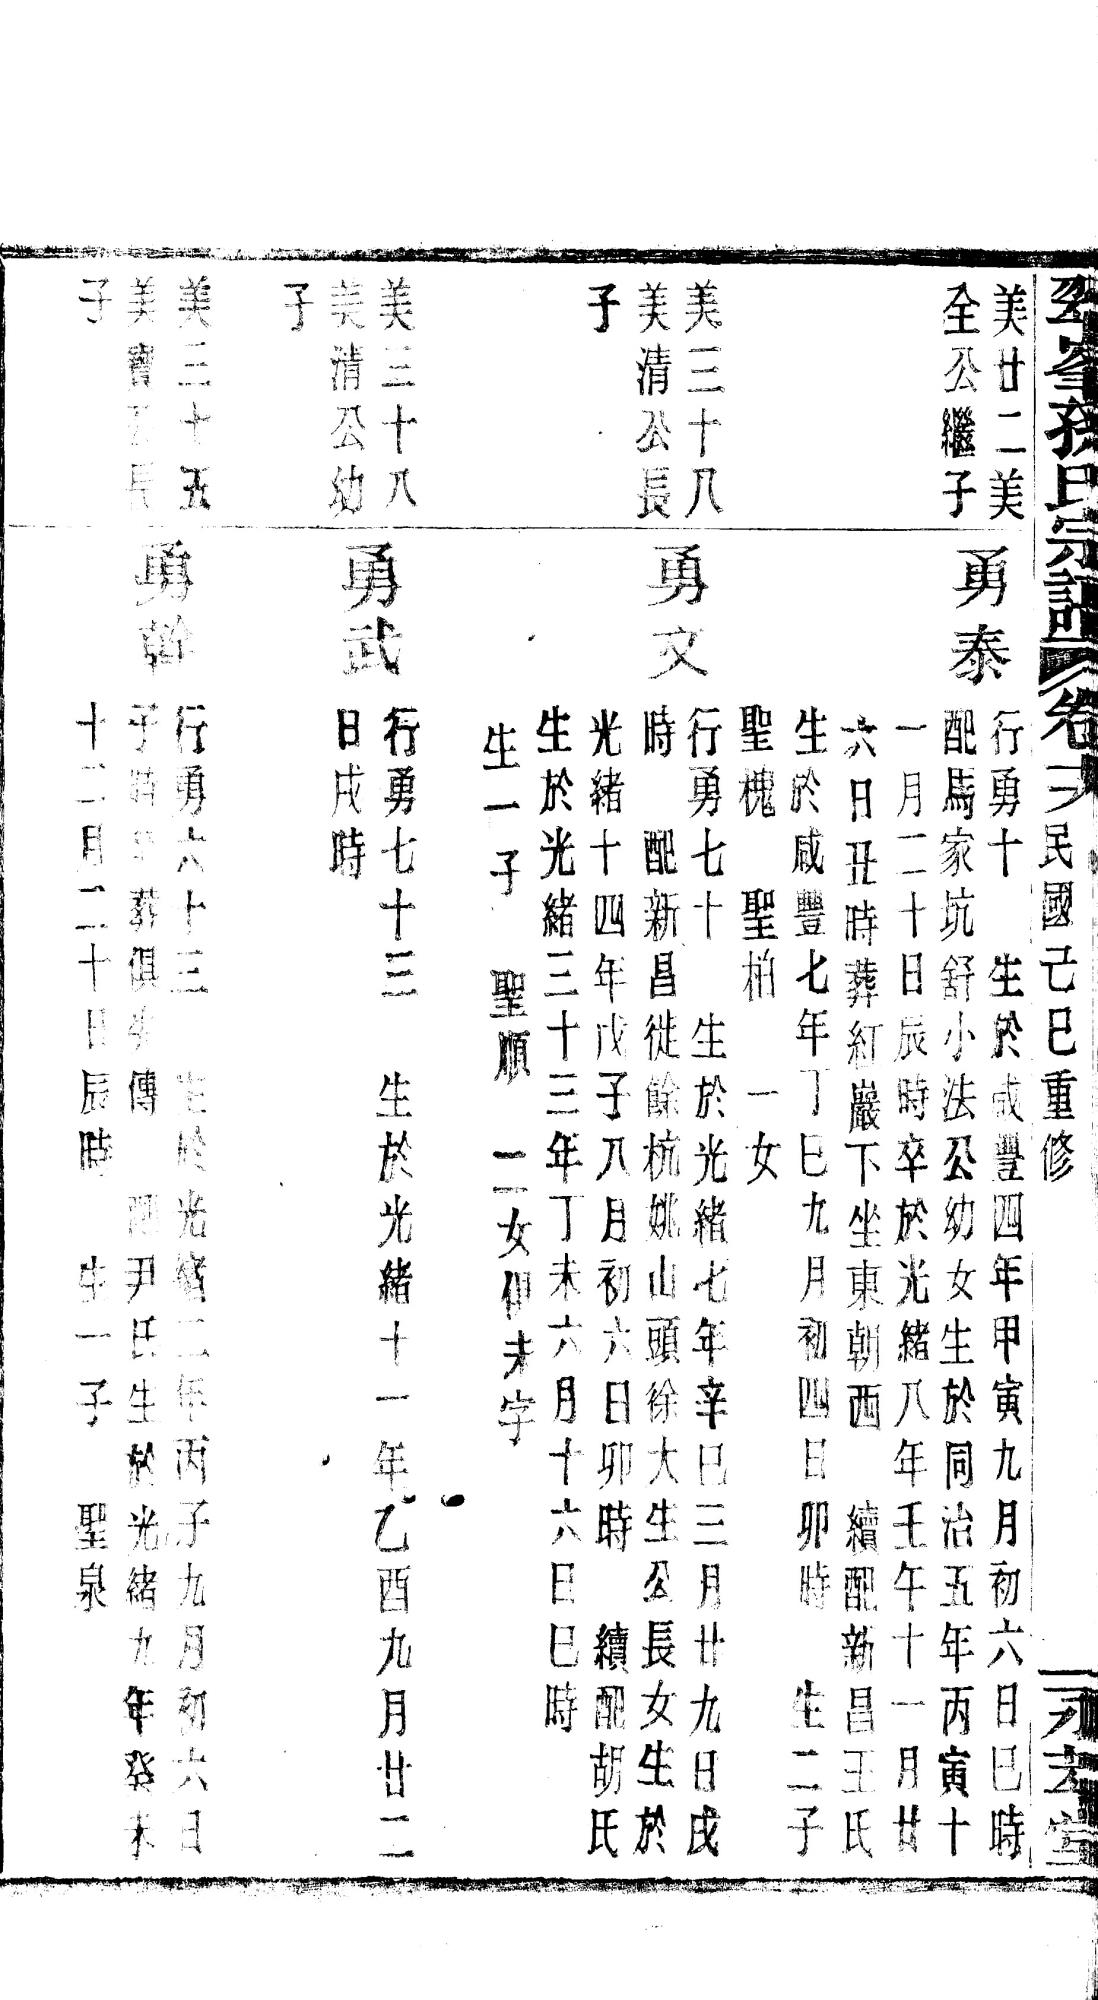 孫氏宗譜 卷 民國己巳重修
美廿二美
全公繼子
勇泰
行勇十 生於咸豐四年甲寅九月初六日巳時
配馬家坑舒小法公幼女生於同治五年丙寅十
一月二十日辰時卒於光緒八年壬午十一月廿
六日丑時葬紅巖下坐東朝西 續配新昌王氏
生於咸豐七年丁巳九月初四日卯時 生二子
聖槐 聖柏 一女
美三十八
美清公長
子
勇文
行勇七十 生於光緒七年辛巳三月廿九日戌
時 配新昌徙餘杭姚山頭徐大生公長女生於
光緒十四年戊子八月初六日卯時 續配胡氏
生於光緒三十三年丁未六月十六日巳時
生一子 聖順 二女俱未字
美三十八
美清公幼
子
勇武
行勇七十三 生於光緒十一年乙酉九月廿二
日戌時
美三十五
美寶公長
子
勇幹
行勇六十三 生於光緒二年丙子九月初六日
子時卒葬俱失傳 配尹氏生於光緒九年癸未
十二月二十日辰時 生一子 聖泉